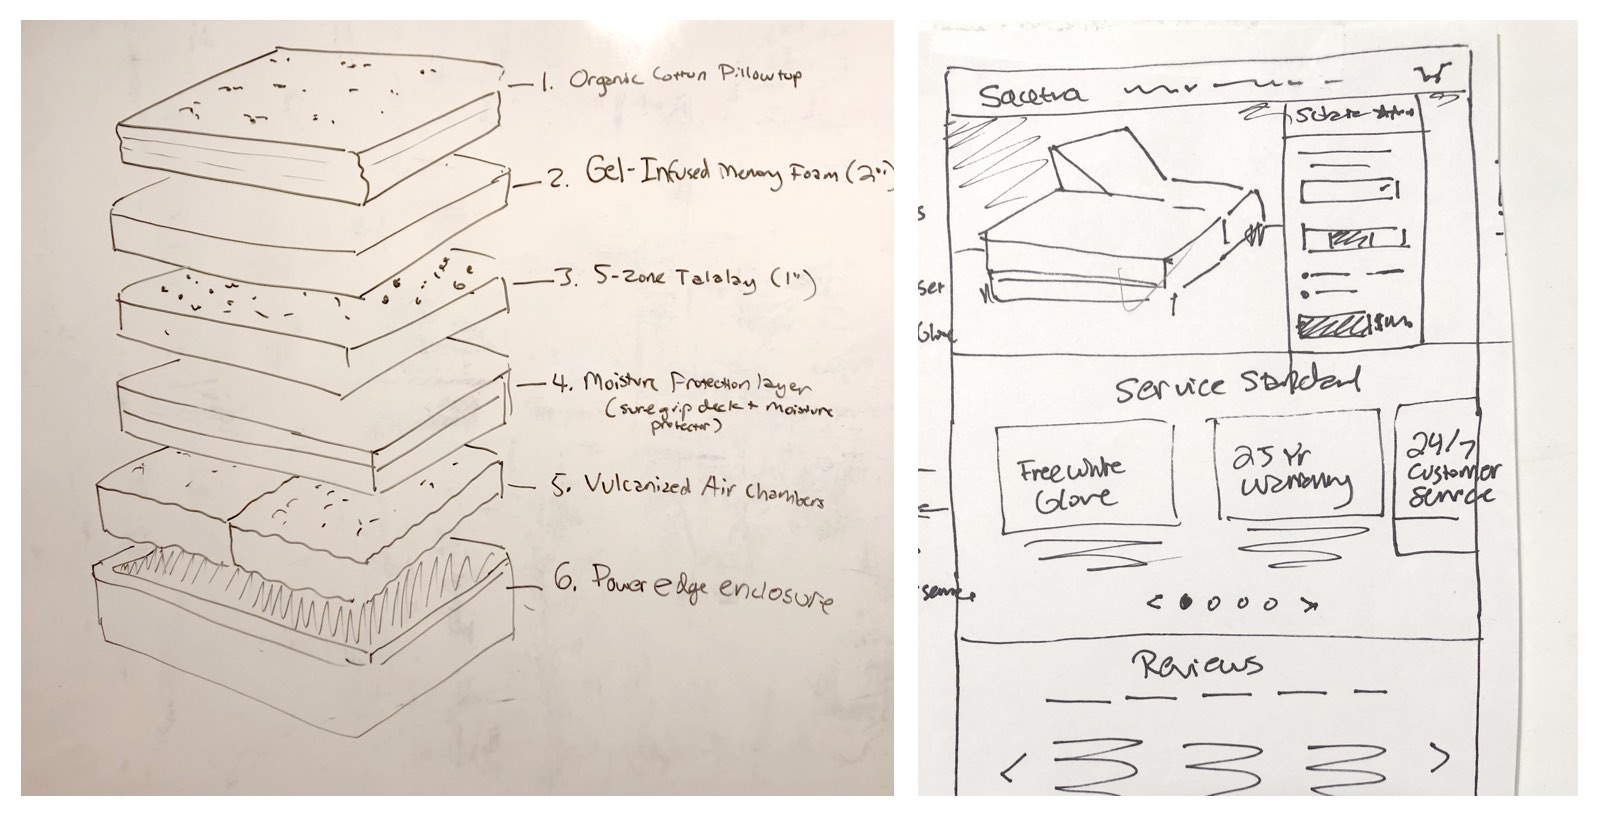 1. Organic Cotton Pillowtop
2. Gel-Infused Memory Foam (2")
3. 5-Zone Talalay (1")
4. Moisture Protection layer
(sure grip deck + moisture
protector)
5. Vulcanized Air Chambers
6. Power edge enclosure
Saatva
Service Standard
Free White
Glove
25 Yr
Warranty
24/7
Customer
Service
service
Reviews